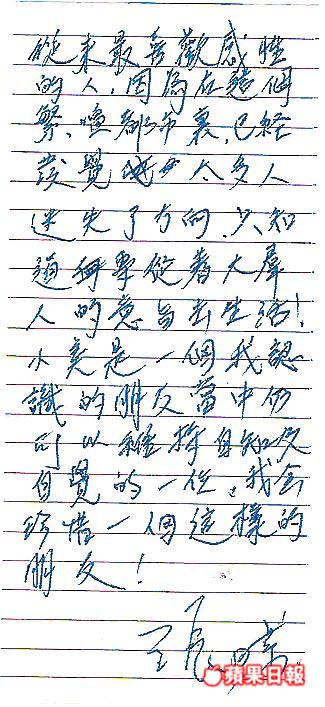 從來最喜歡感性
的人,因為在這個
繁、喧都市裏,已經
發覺太多人
迷失了方向,只知
道無畢從着大羣
人的意旨去生活!
小美是一個我認
識的朋友當中仍
可以維持自知及
自覺的一位,我会
珍惜一個這樣的
朋友!
蘋果日報